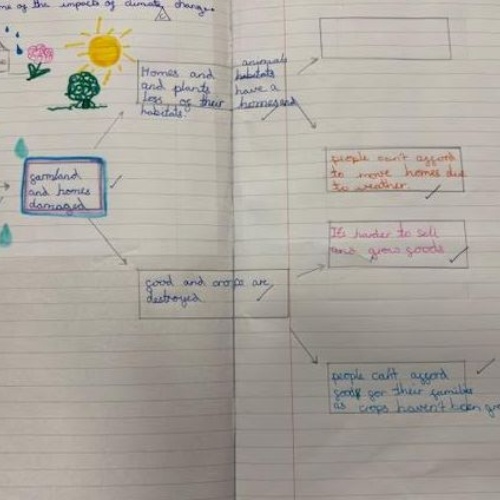 me of the impacts of climate change.
Homes and
and plants
loss of their
habitats.
animals
habitats
have a
homes and
people can't afford
to move homes due
to weather.
farmland
and homes
damaged
It's harder to sell
and grow goods
food and crops are
destroyed
people can't afford
food for their families
as crops haven't been gro